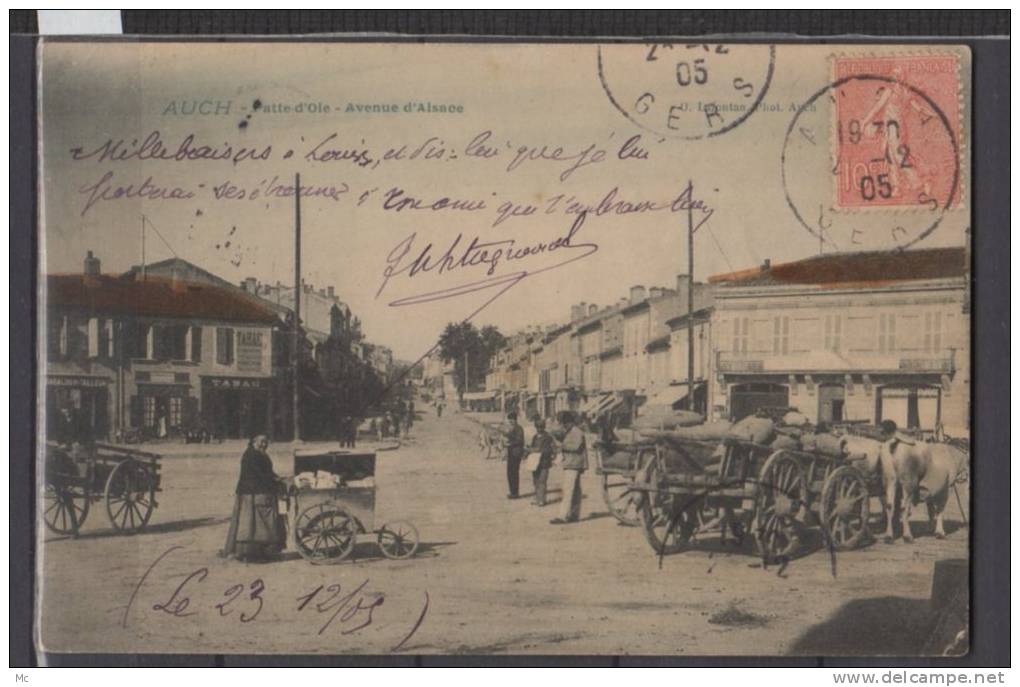 AUCH - Patte-d'Oie - Avenue d'Alsace
Phot. Auch
2 -12
05
GERS
AUCH
19 30
2 -12
05
GERS
Mille baisers à Louis, et dis-lui que je lui
porterai ses étrennes
qui t'embrasse bien
TABAC
TABAC
(Le 23 12/05)
Mc
www.delcampe.net